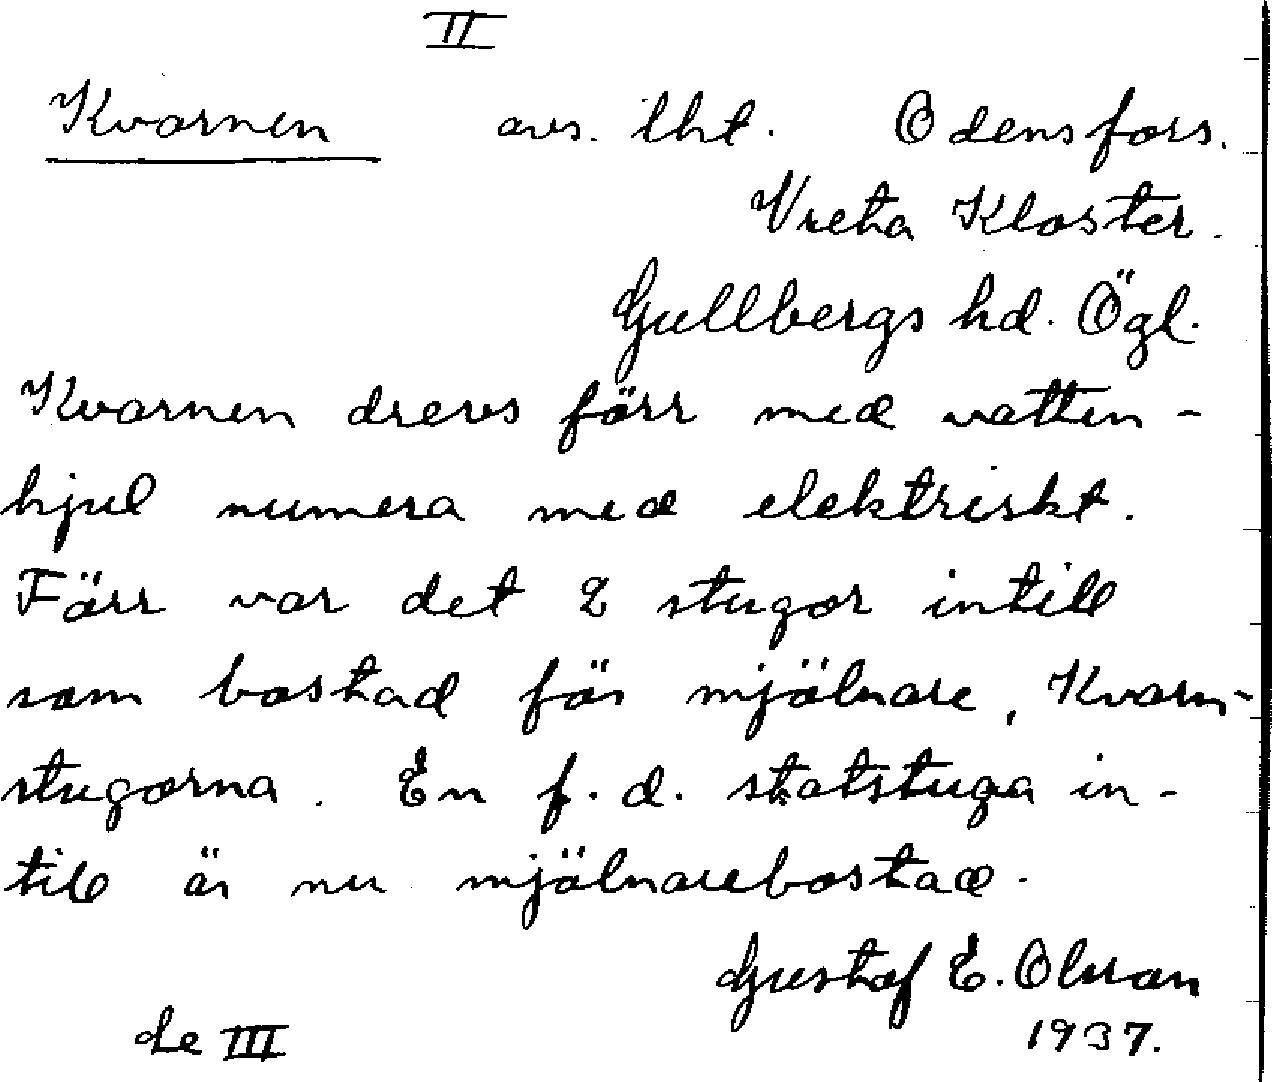 II
Kvarnen avs. lht. Odensfors.
Vreta Kloster.
Gullbergs hd. Ögl.
Kvarnen drevs förr med vatten-
hjul numera med elektriskt.
Förr var det 2 stugor intill
som bostad för mjölnare, Kvarn-
stugorna. En f.d. statstuga in-
till är nu mjölnarebostad.
Gustaf E. Olsson
1937.
de III